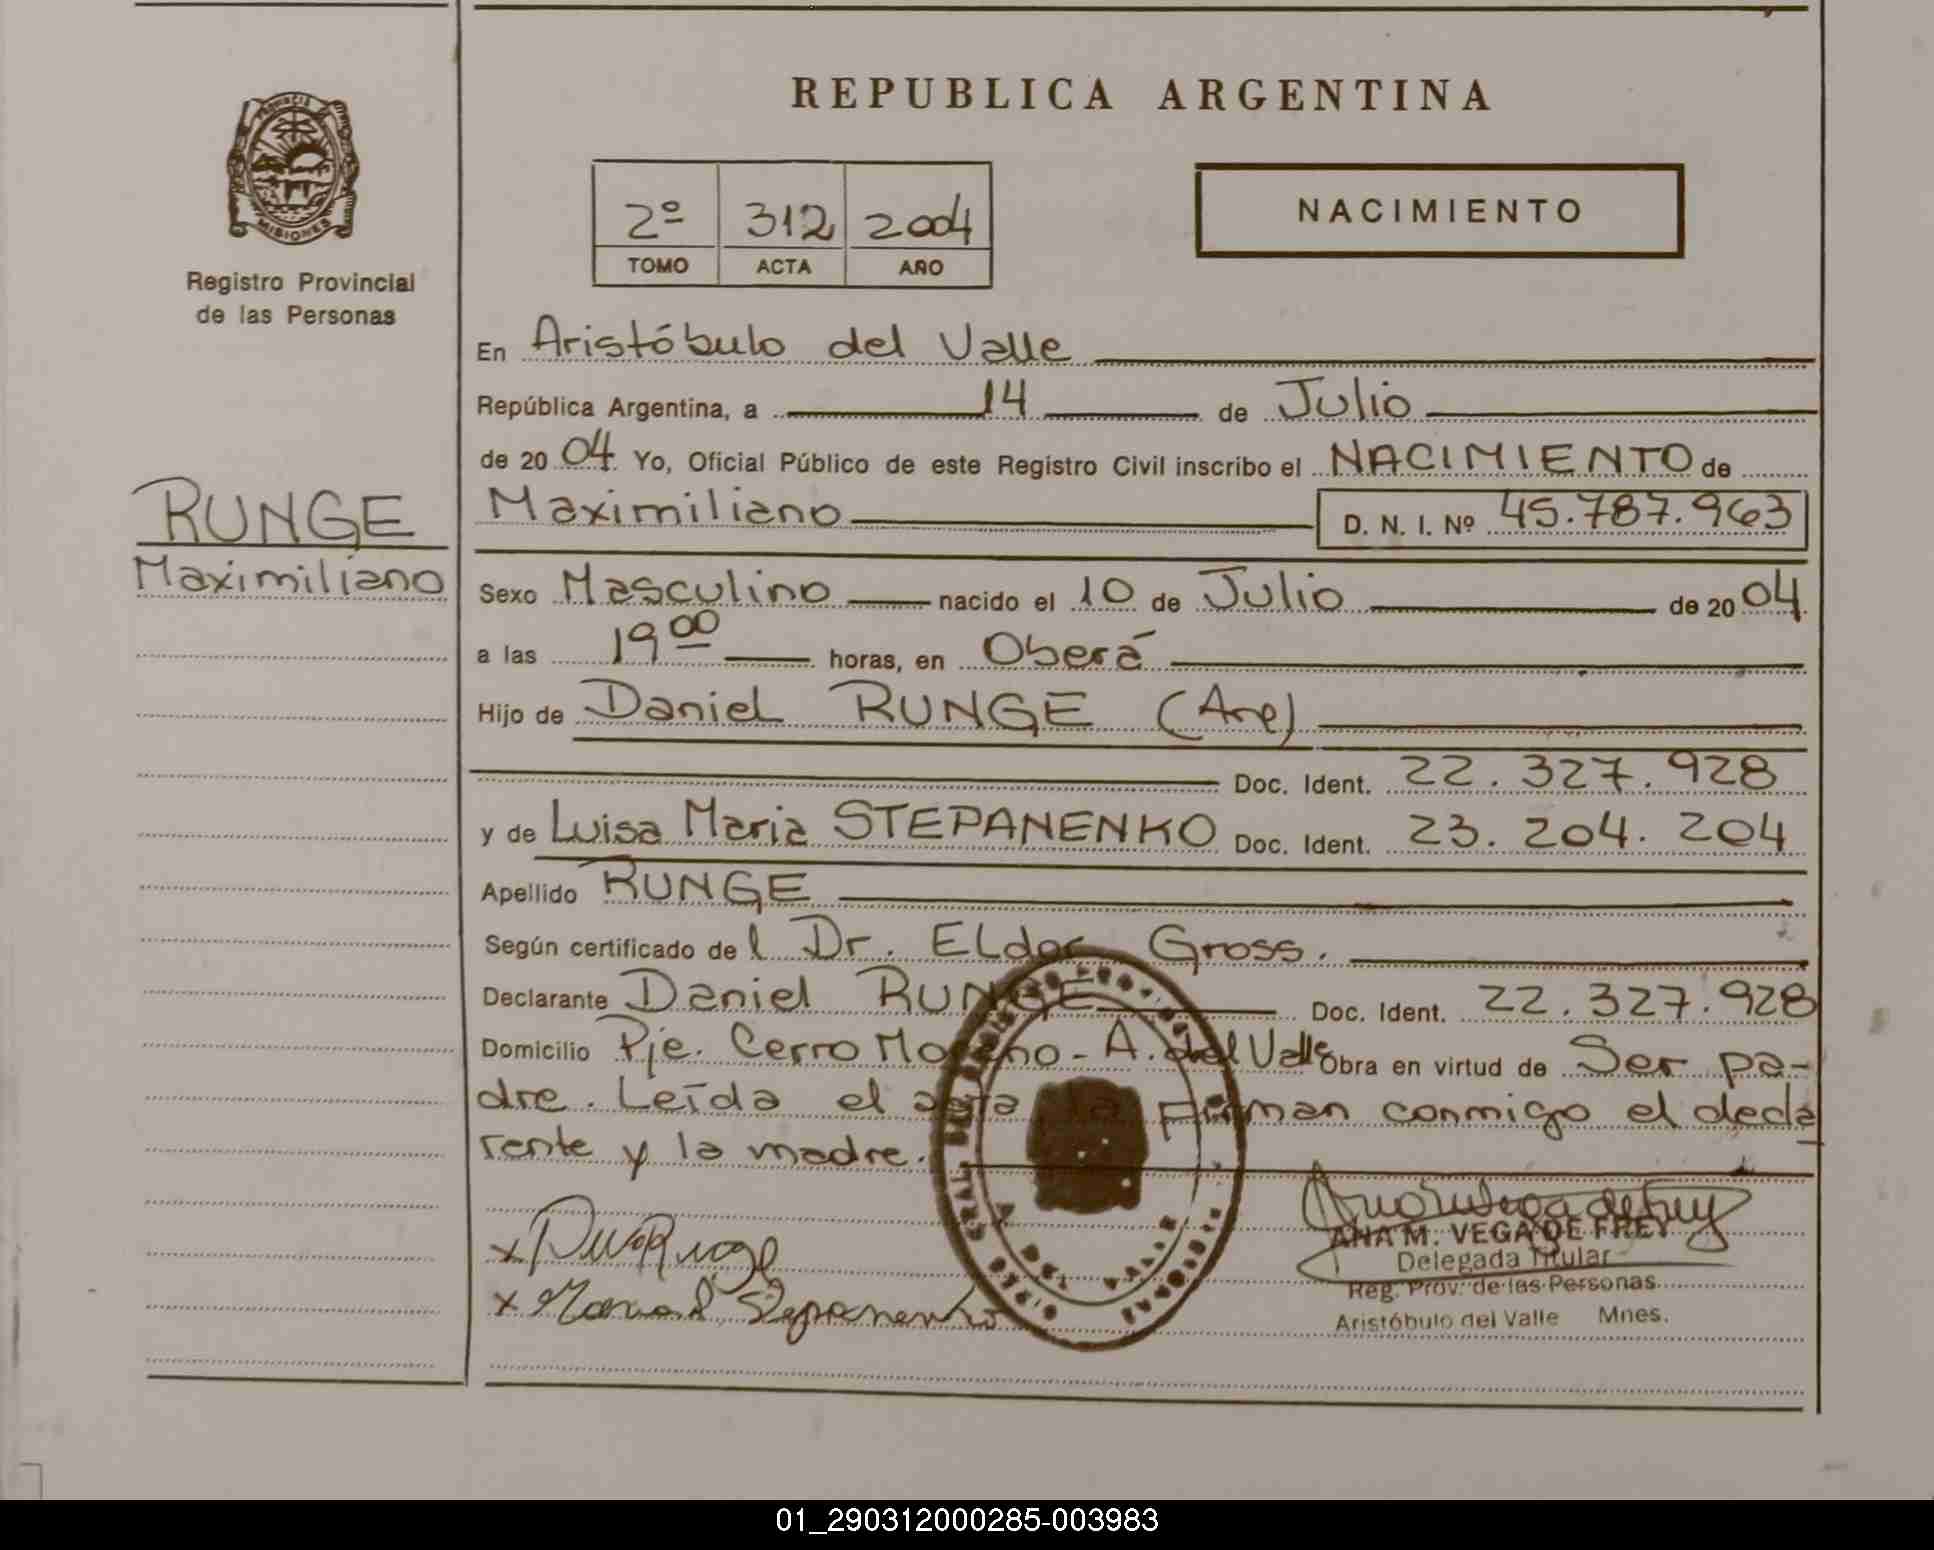 REPUBLICA ARGENTINA
PROVINCIA
MISIONES
Registro Provincial
de las Personas
2º 312 2004
TOMO ACTA AÑO
NACIMIENTO
En Aristóbulo del Valle
República Argentina, a 14 de Julio
de 2004 Yo, Oficial Público de este Registro Civil inscribo el NACIMIENTO de
RUNGE
Maximiliano
Maximiliano D. N. I. Nº 45.787.963
Sexo Masculino nacido el 10 de Julio de 2004
a las 19 00 horas, en Oberá
Hijo de Daniel RUNGE (Arg)
Doc. Ident. 22.327.928
y de Luisa Maria STEPANENKO Doc. Ident. 23.204.204
Apellido RUNGE
Según certificado del Dr. Eldor Gross.
Declarante Daniel RUNGE Doc. Ident. 22.327.928
Domicilio Pje. Cerro Moreno - A. del Valle Obra en virtud de Ser pa-
dre. Leída el acta, la Firman conmigo el decla
rente y la madre.
ANA M. VEGA DE FREY
Delegada Titular
Reg. Prov. de las Personas
Aristóbulo del Valle Mnes.
01_290312000285-003983